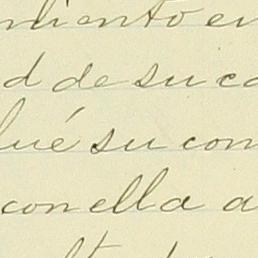 miento en
d de su co
lué su con
con ella a